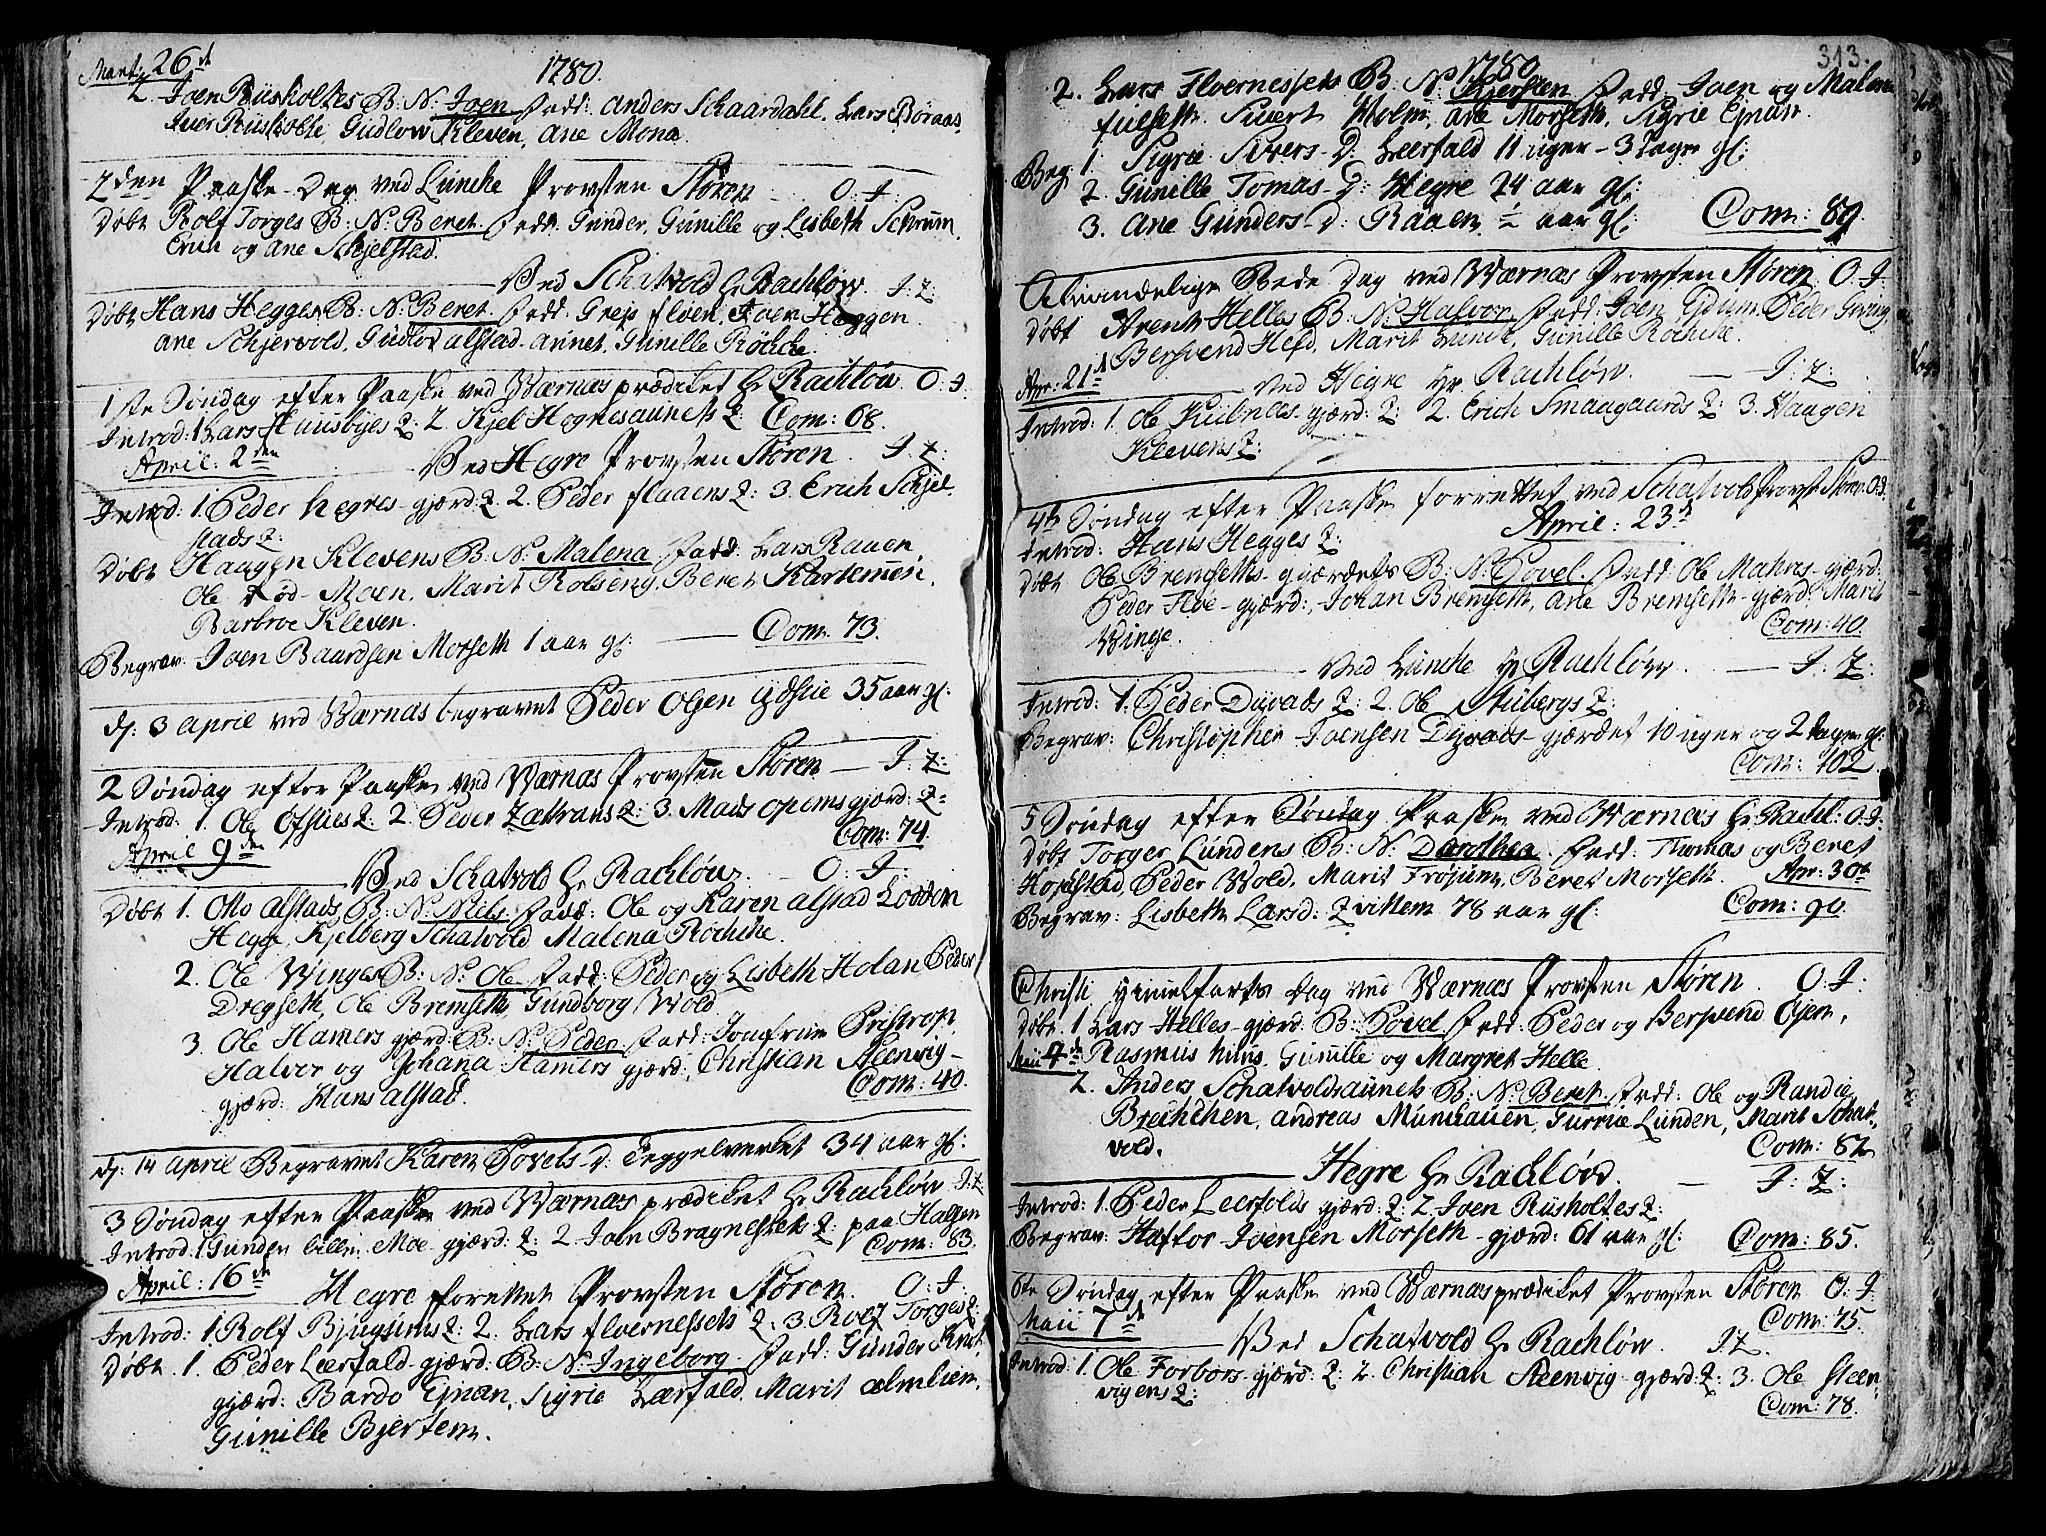 Mart: 26 d
1780.
2. Joen Riisholtes B: N: Joen Fadd: Anders Schaardahl, Lars Boraas
Iver Riisholte, Gudlow Kleven, Ane Mona.
2den Paaske-Dag ved Lunche Provsten Støren O: I.
Døbt Rolf Torges B: N: Beret. Fadd: Gunder, Gunille og Lisbeth Schrüm,
Erich og Ane Schjelstad.
Ved Schatvold Hr Rachløw. I: Z:
Døbt Hans Hegges B: N: Beret. Fadd: Greis Floen, Joen Heggen
Ane Schjervold, Gudlov Alstad-aunet, Gunille Röchche.
1ste Søndag efter Paaske ved Værnæs prædiket Hr Rachløw O: I.
Introd: 1 Lars Huusbyes Z: 2 Kjel Hognesaunets Z Com: 68.
April: 2den
Ved Hegre Provsten Støren. I: Z:
Introd: 1. Peder Hegres-gjærd: Z 2. Peder Flaaens Z: 3. Erich Schjel
stads Z:
Døbt Haagen Klevens B: N: Malena Fadd: Lars Raaen,
Ole Rød-Moen, Marit Rolseng, Beret Kartemüen,
Barbroe Kleven.
Begrav: Joen Baardsen Morseth 1 aar gl: Com: 73.
d: 3 April ved Værnæs begravet Peder Olsen Ydstie 35 aar gl:
2 Søndag efter Paaske ved Værnæs Provsten Støren I: Z:
Introd: 1. Ole Ofsties Z: 2. Peder Zættrans Z: 3. Mads Opems gjærd: Z:
April 9den
Com: 74
Ved Schatvold Hr Rachløw. O: I.
Døbt 1. Otto Alstads B: N: Niels Fadd: Ole og Karen Alstad Lodden
Hegge, Kjelberg Schatvold Malena Röchche.
2. Ole Winges B: N: Ole Fadd: Peder og Lisbeth Holan Peder
Dregseth, Ole Bremseth, Gundborg Wold.
3. Ole Hamers gjærd: B: N: Peder. Fadd: Jomfrue Pristrop,
Halvor og Johana Hamers gjærd:, Christian Steenvig-
gjærd: Hans Alstad.
Com: 40.
d: 14 April Begravet Karen Povels-d: Teggelverket 34 aar gl:
3 Søndag efter Paaske ved Værnæs prædiket Hr Rachløw I: Z
Introd: 1 Gunder lille Moe-gjærd: Z: 2. Joen Bragnessets Z: paa Halsen
Com: 83.
April: 16de
Hegre forettet Provsten Støren. O: I:
Introd: 1. Rolf Bjugums Z: 2. Lars Floernessets Z: 3. Rolf Torges Z:
Døbt. 1. Peder Leerfald-gjærd: B: N: Ingeborg. Fadd: Gunder
gjærd: Bardo Ejnan, Sigrie Leerfald, Marit Almlien,
Gunille Bjertem.
313.
1780
2. Lars Floernessets B. N: Kjersten Fadd: Joen og Malena
Fulseth, Sivert Holm, Ane Morseth, Sigrie Ejnan.
Beg: 1. Sigrie Sivers-D: Leerfald 11 uger-3 dage gl:
2. Gunille Tomas-D: Hegre 24 aar gl:
3. Ane Gunders-d: Raaen ½ aar gl:
Com: 89
Almindelige Bede Dag ved Værnæs Provsten Støren O: I
Døbt Arent Helles B: N: Halvor Fadd: Joen Ejdum, Peder
Bersvend Hefd, Marit Lundt, Gunille Röchche.
Apr: 21 d
Ved Hegre Hr. Rachløw. I: Z:
Introd: 1. Ole Kulnæs-gjærd: Z: 2. Erich Smaagaards Z: 3. Haagen
Klevens Z:
4de Søndag efter Paaske forrettet ved Schatvold Provst Støren O: I.
April: 23 d
Introd: Hans Hegges Z:
Døbt Ole Bremseths-gjærdets B: N: Povel. Fadd: Ole Mahus-gjærd:
Peder Floe-gjærd:, Johan Bremseth, Ane Bremseth-gjærd: Marit
Winge.
Com: 40.
Ved Lunche Hr Rachløw. I: Z:
Introd: 1. Peder Dyvads Z: 2. Ole Stubergs Z:
Begrav: Christopher Joensen Dyvads-gjærdet 10 uger og 2 dage gl:
Com: 102.
5 Søndag efter Søndag Paaske ved Værnæs Hr Rachl: O: I.
Døbt Torger Lundens B: N: Dorothea. Fadd: Thomas og Beret
Hojstad, Peder Wold, Marit Frøsüm, Beret Morseth. Apr: 30te
Begrav: Lisbeth Larsd: Zvittem 78 aar gl:
Com: 90.
Christi Himelfarts Dag ved Værnæs Provsten Støren. O: I:
Døbt. 1 Lars Helles-gjærd: B: Povel Fadd: Peder og Bersvend Ejem,
Maii 4de Rasmus Muus, Gunille og Margret Helle
2. Anders Schatvoldsaunets B: N: Beret. Fadd: Ole og Randie
Brechchen, Andreas Munhauen, Gurrie Lunden, Marit Schat-
vold.
Com: 82
Hegre Hr Rachløw. I: Z:
Introd: 1. Peder Leerfolds gjærd: Z: 2. Joen Riisholtes Z:
Begrav: Haftor Joensen Morseth-gjærd: 61 aar gl: Com: 85.
6te Søndag efter Paaske ved Værnæs prædiket Provsten Støren O: I.
Maii 7de
Com: 75.
Ved Schatvold Hr Rachløw. I: Z.
Introd: 1. Ole Forbors-gjærd: Z: 2. Christian Steenvig-gjærd: Z: 3. Ole Steen-
vigens Z:
Com: 78.